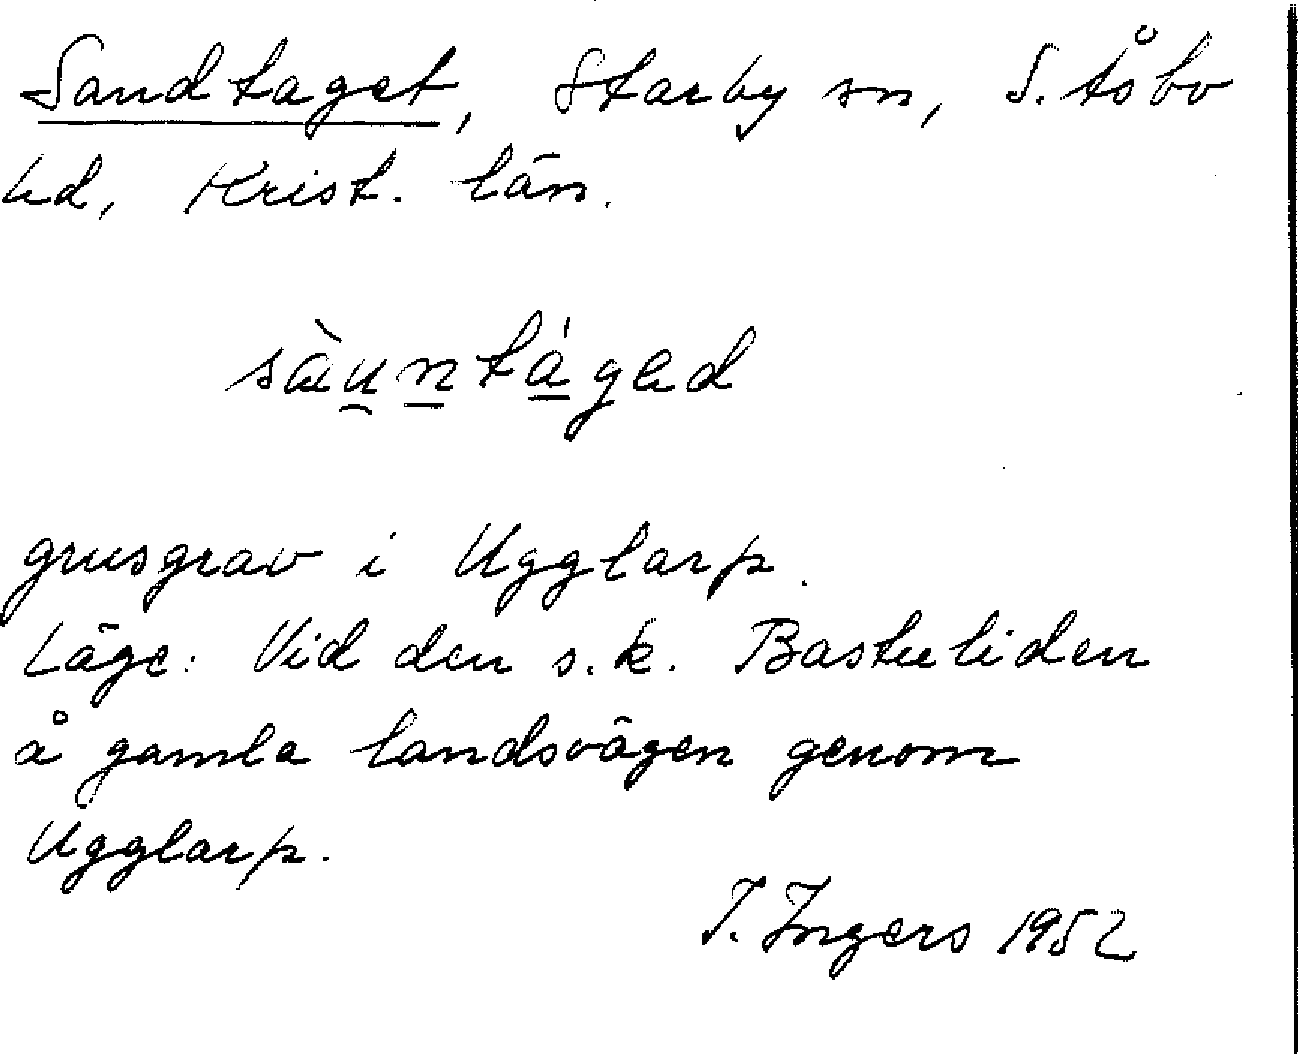 Sandtaget, Starby sn, S. Åsbo
hd, Krist. län.
sæ̀u̯n̲tá̲gəd
grusgrav i Ugglarp.
Läge: Vid den s.k. Basteliden
å gamla landsvägen genom
Ugglarp.
I. Ingers 1952